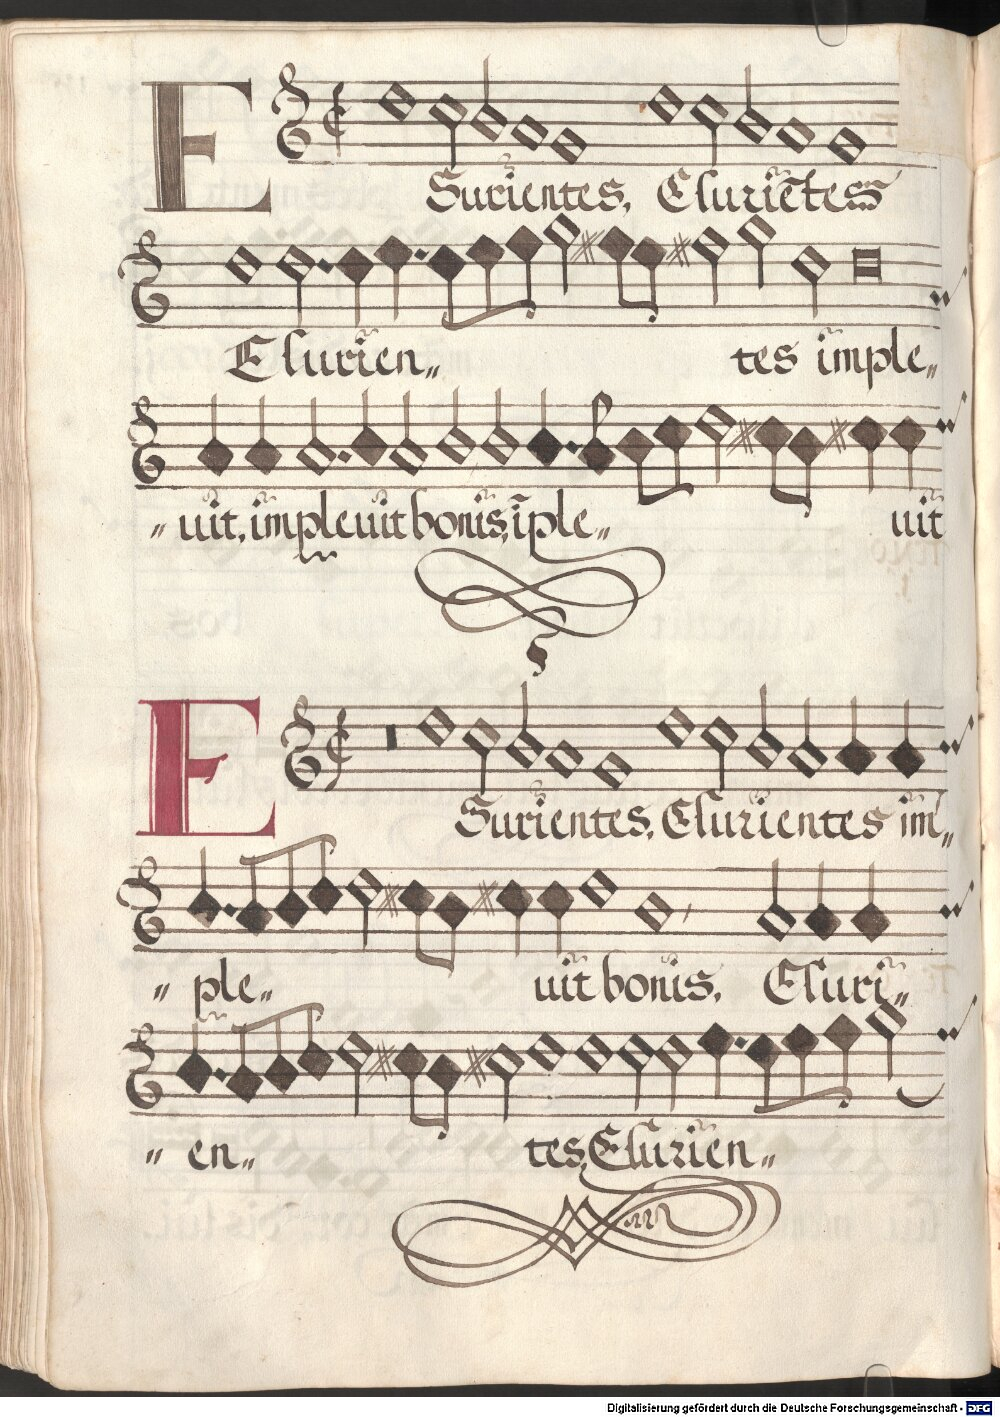 ESurientes, Esuriētes
Esurien„ tes imple„
„ uit, impleuit bonis, īple„ uit
ESurientes, Esurientes im„
„ ple„ uit bonis, Esuri„
„ en„ tes, Esurien„
Digitalisierung gefördert durch die Deutsche Forschungsgemeinschaft - DFG